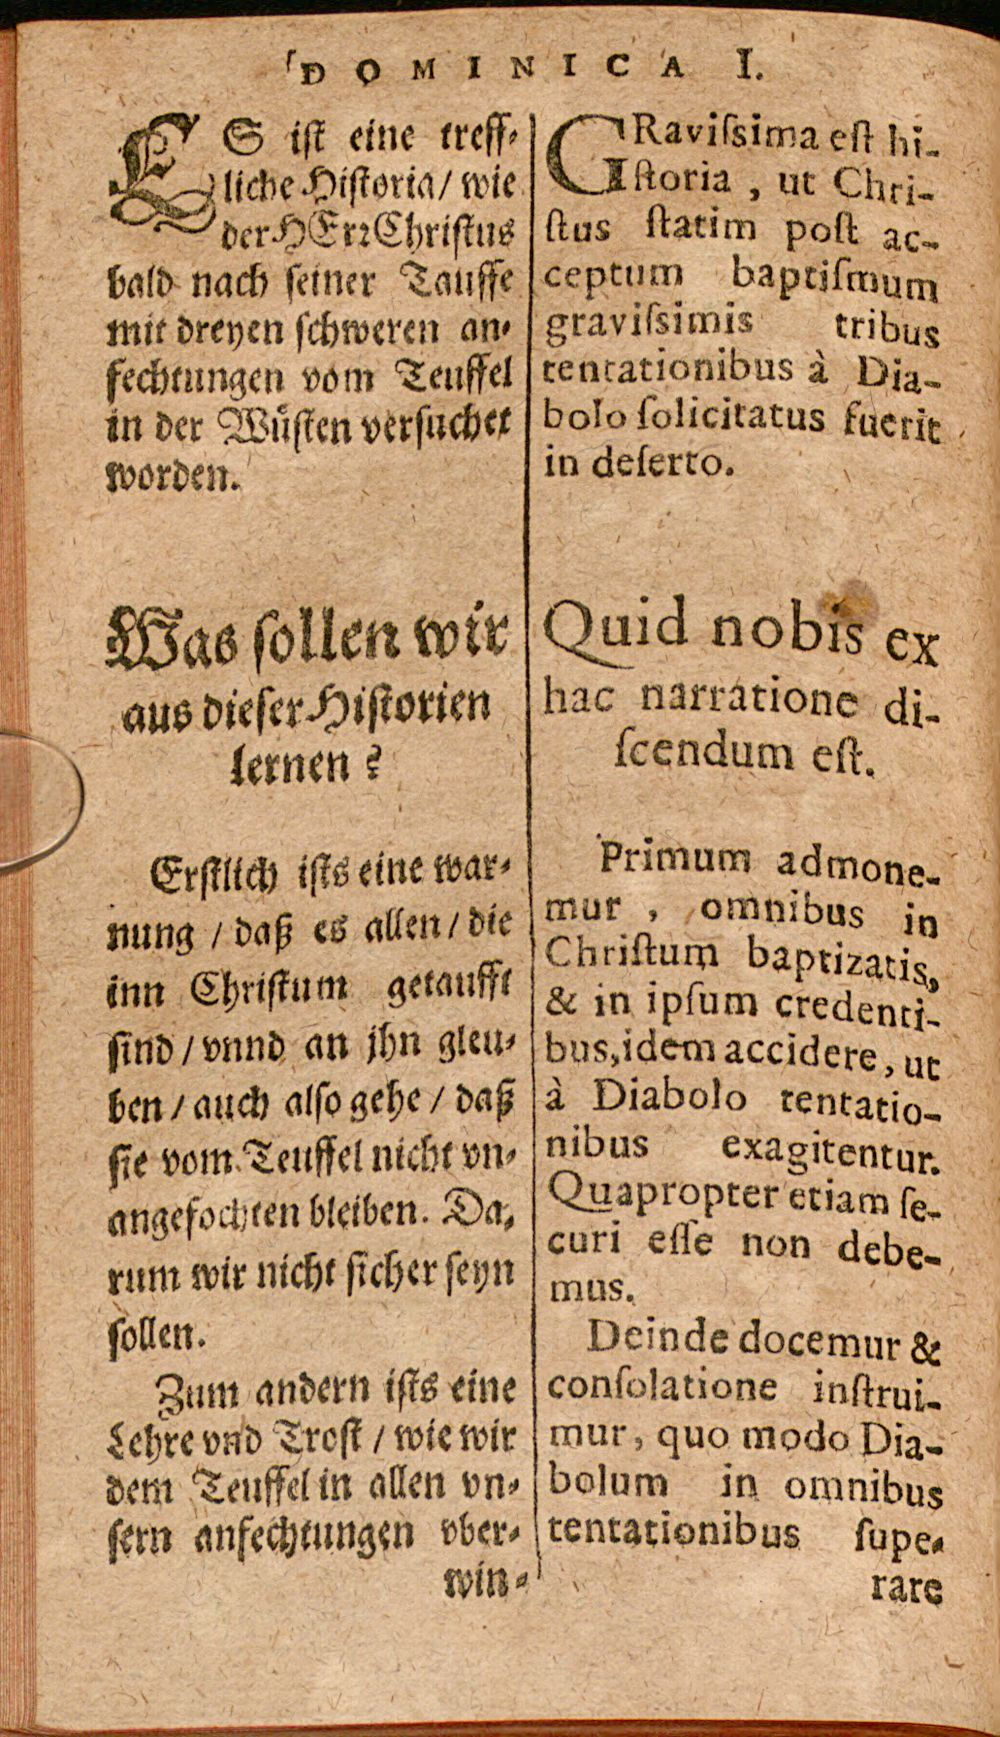 DOMINICA I.
ES ist eine treff⸗
liche Historia/ wie
der HErꝛ Christus
bald nach seiner Tauffe
mit dreyen schweren an⸗
fechtungen vom Teuffel
in der Wuͤsten versuchet
worden.
Was sollen wir
aus dieser Historien
lernen?
Erstlich ists eine war⸗
nung / daß es allen / die
inn Christum getaufft
sind / vnnd an jhn gleu⸗
ben / auch also gehe / daß
sie vom Teuffel nicht vn⸗
angefochten bleiben. Da⸗
rum wir nicht sicher seyn
sollen.
Zum andern ists eine
Lehre vnd Trost / wie wir
dem Teuffel in allen vn⸗
sern anfechtungen vber⸗
win⸗
GRaviſsima eſt hi-
ſtoria , ut Chri-
ſtus ſtatim poſt ac-
ceptum baptiſmum
graviſsimis tribus
tentationibus à Dia-
bolo ſolicitatus fuerit
in deſerto.
Quid nobis ex
hac narratione di-
ſcendum eſt.
Primum admone-
mur , omnibus in
Chriſtum baptizatis,
& in ipſum credenti-
bus, idem accidere, ut
à Diabolo tentatio-
nibus exagitentur.
Quapropter etiam ſe-
curi eſſe non debe-
mus.
Deinde docemur &
conſolatione inſtrui-
mur, quo modo Dia-
bolum in omnibus
tentationibus ſupe-
rare